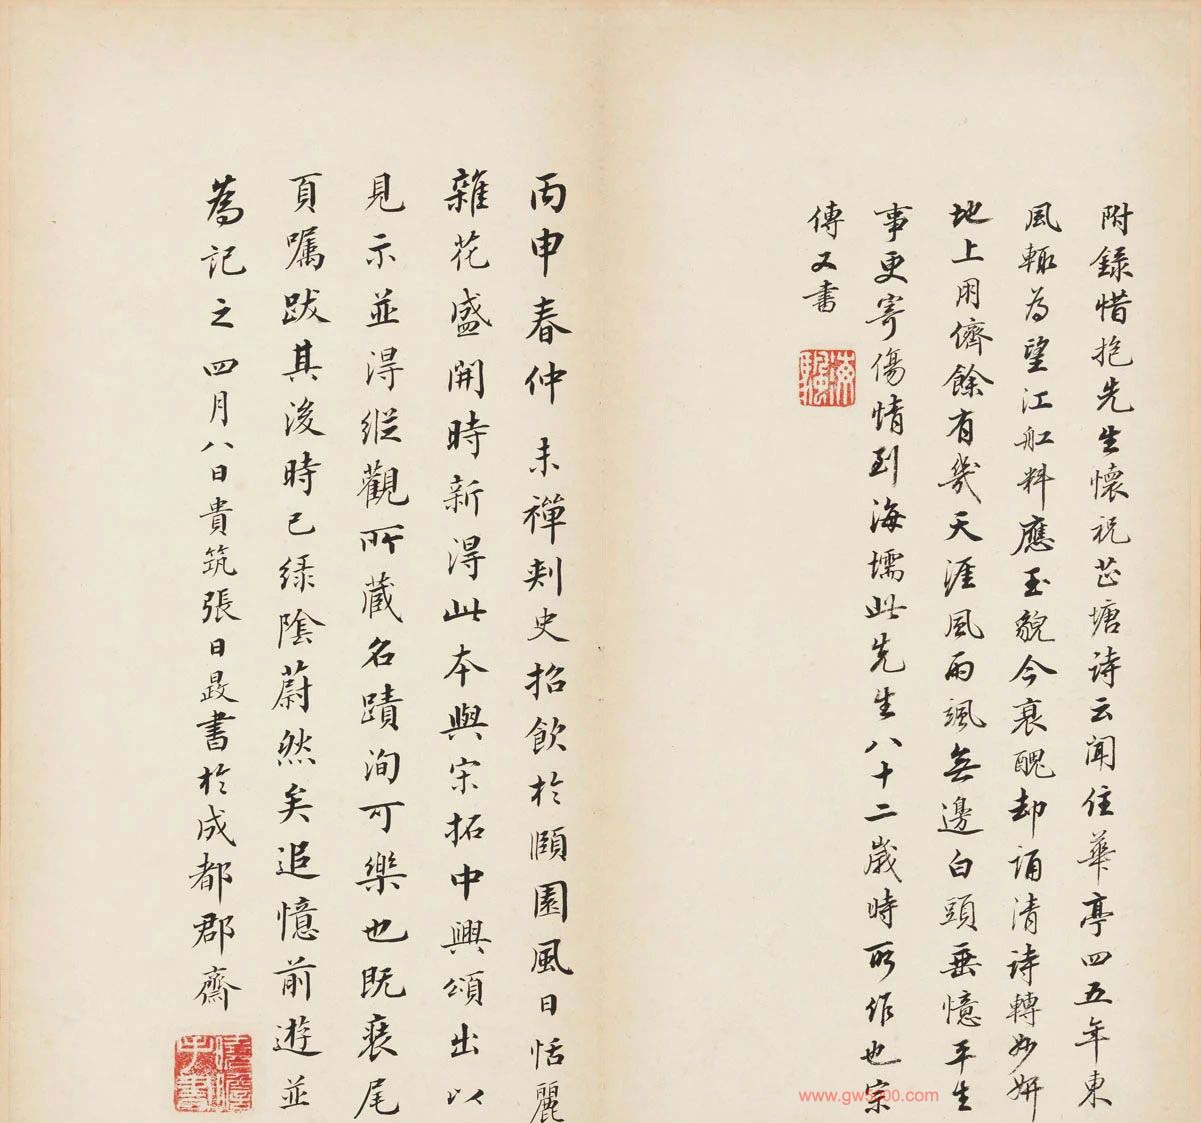 附錄惜抱先生懷祝芷塘詩云聞住華亭四五年東
風輒為望江舡料應玉貌今衰醜却誦清詩轉妙妍
地上用儕餘有幾天涯風雨颯無邊白頭垂憶平生
事更寄傷情到海壖此先生八十二歲時所作也宗
傳又書
丙申春仲未禪刺史招飲於頤園風日恬麗
雜花盛開時新得此本與宋拓中興頌出以
見示並得縱觀所藏名蹟洵可樂也既裒尾
頁囑跋其後時已綠陰蔚然矣追憶前遊並
為記之四月八日貴筑張日晸書於成都郡齋
www.gw5000.com